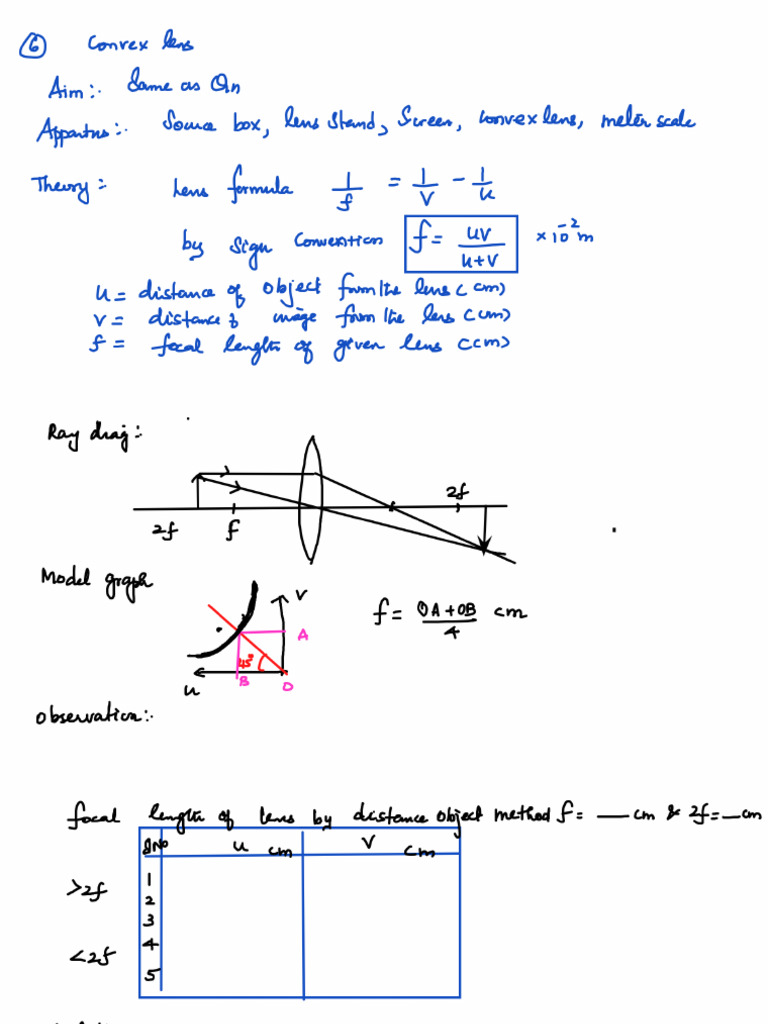 6 Convex lens
Aim:- Same as Qn
Apparatus:- Source box, lens stand, Screen, Convex lens, meter scale
Theory:- Lens formula 1/f = 1/v - 1/u
by sign Convention f = uv/u+v × 10⁻² m
u = distance of object form the lens (cm)
v = distance of image form the lens (cm)
f = focal length of given lens (cm)
Ray diag:-
2f
2f f
Model graph
v
f = OA+OB/4 cm
A
45°
u B O
Observation:-
focal length of lens by distance object method f = __ cm & 2f = __ cm
S.No u cm v cm
1
>2f
2
3
4
<2f
5